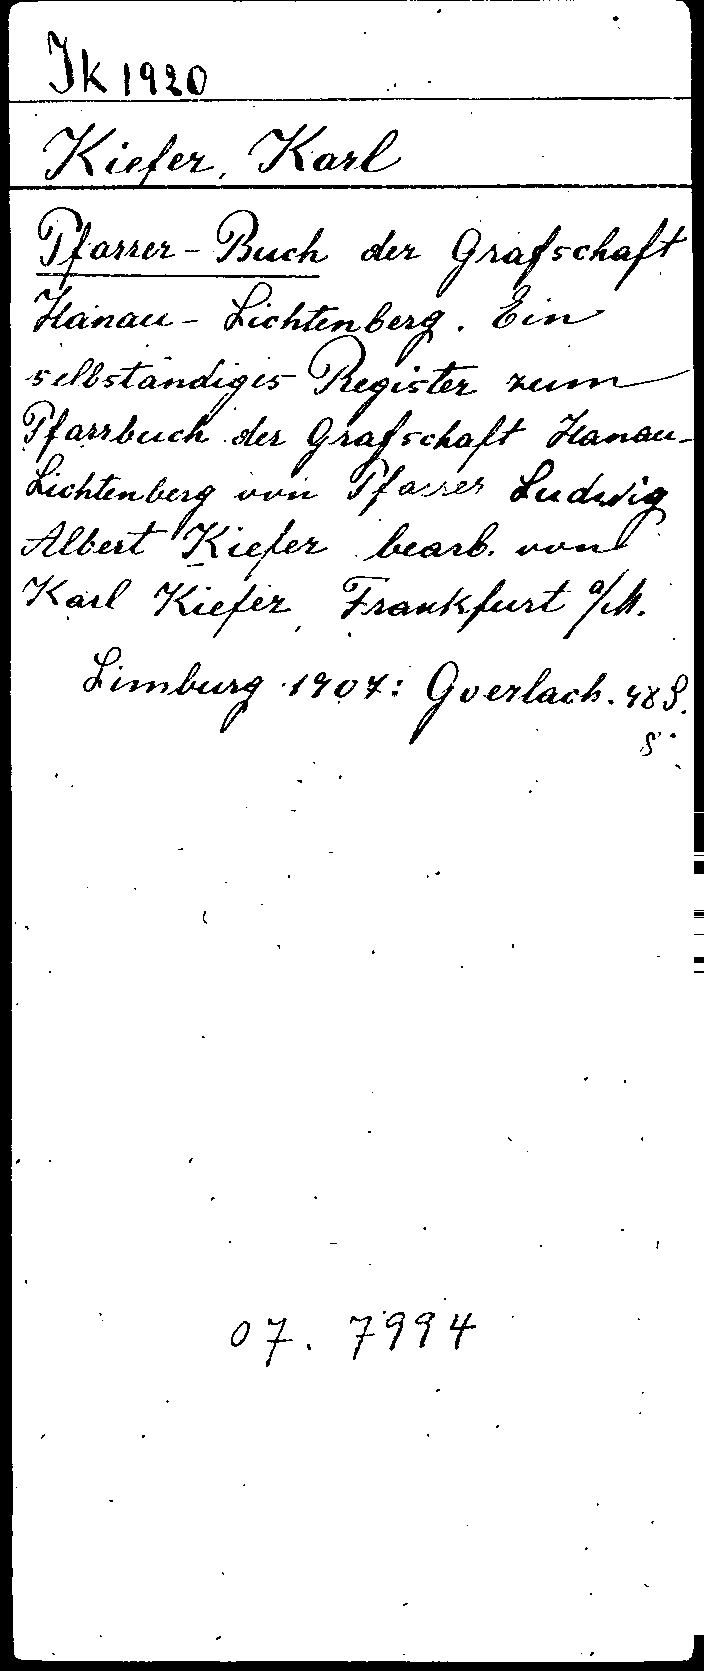 Jk 1920
Kiefer, Karl
Pfarrer-Buch der Grafschaft
Hanau-Lichtenberg. Ein
selbständiges Register zum
Pfarrbuch der Grafschaft Hanau-
Lichtenberg von Pfarrer Ludwig
Albert Kiefer bearb. von
Karl Kiefer, Frankfurt a/M.
Limburg 1907: Goerlach. 48 S.
8°
07. 7994